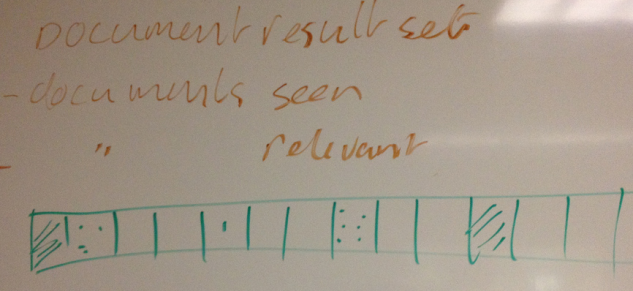 Document result set
- documents seen
- " relevant